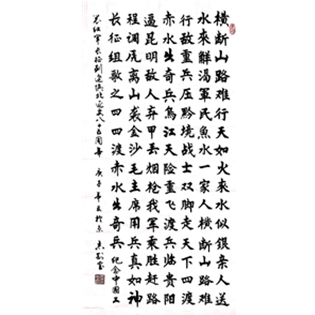 横断山路难行天如火来水似银亲人送
水來解渴軍民魚水一家人横断山路难
行敌重兵压黔境战士双脚走天下四渡
赤水出奇兵乌江天险重飞渡兵临贵阳
逼昆明敌人弃甲丢烟枪我军乘胜赶路
程调虎离山袭金沙毛主席用兵真如神
长征组歌之四四渡赤水出奇兵 纪念中国工
农红军长征到达陕北延安八十五周年 庚子年夏於京